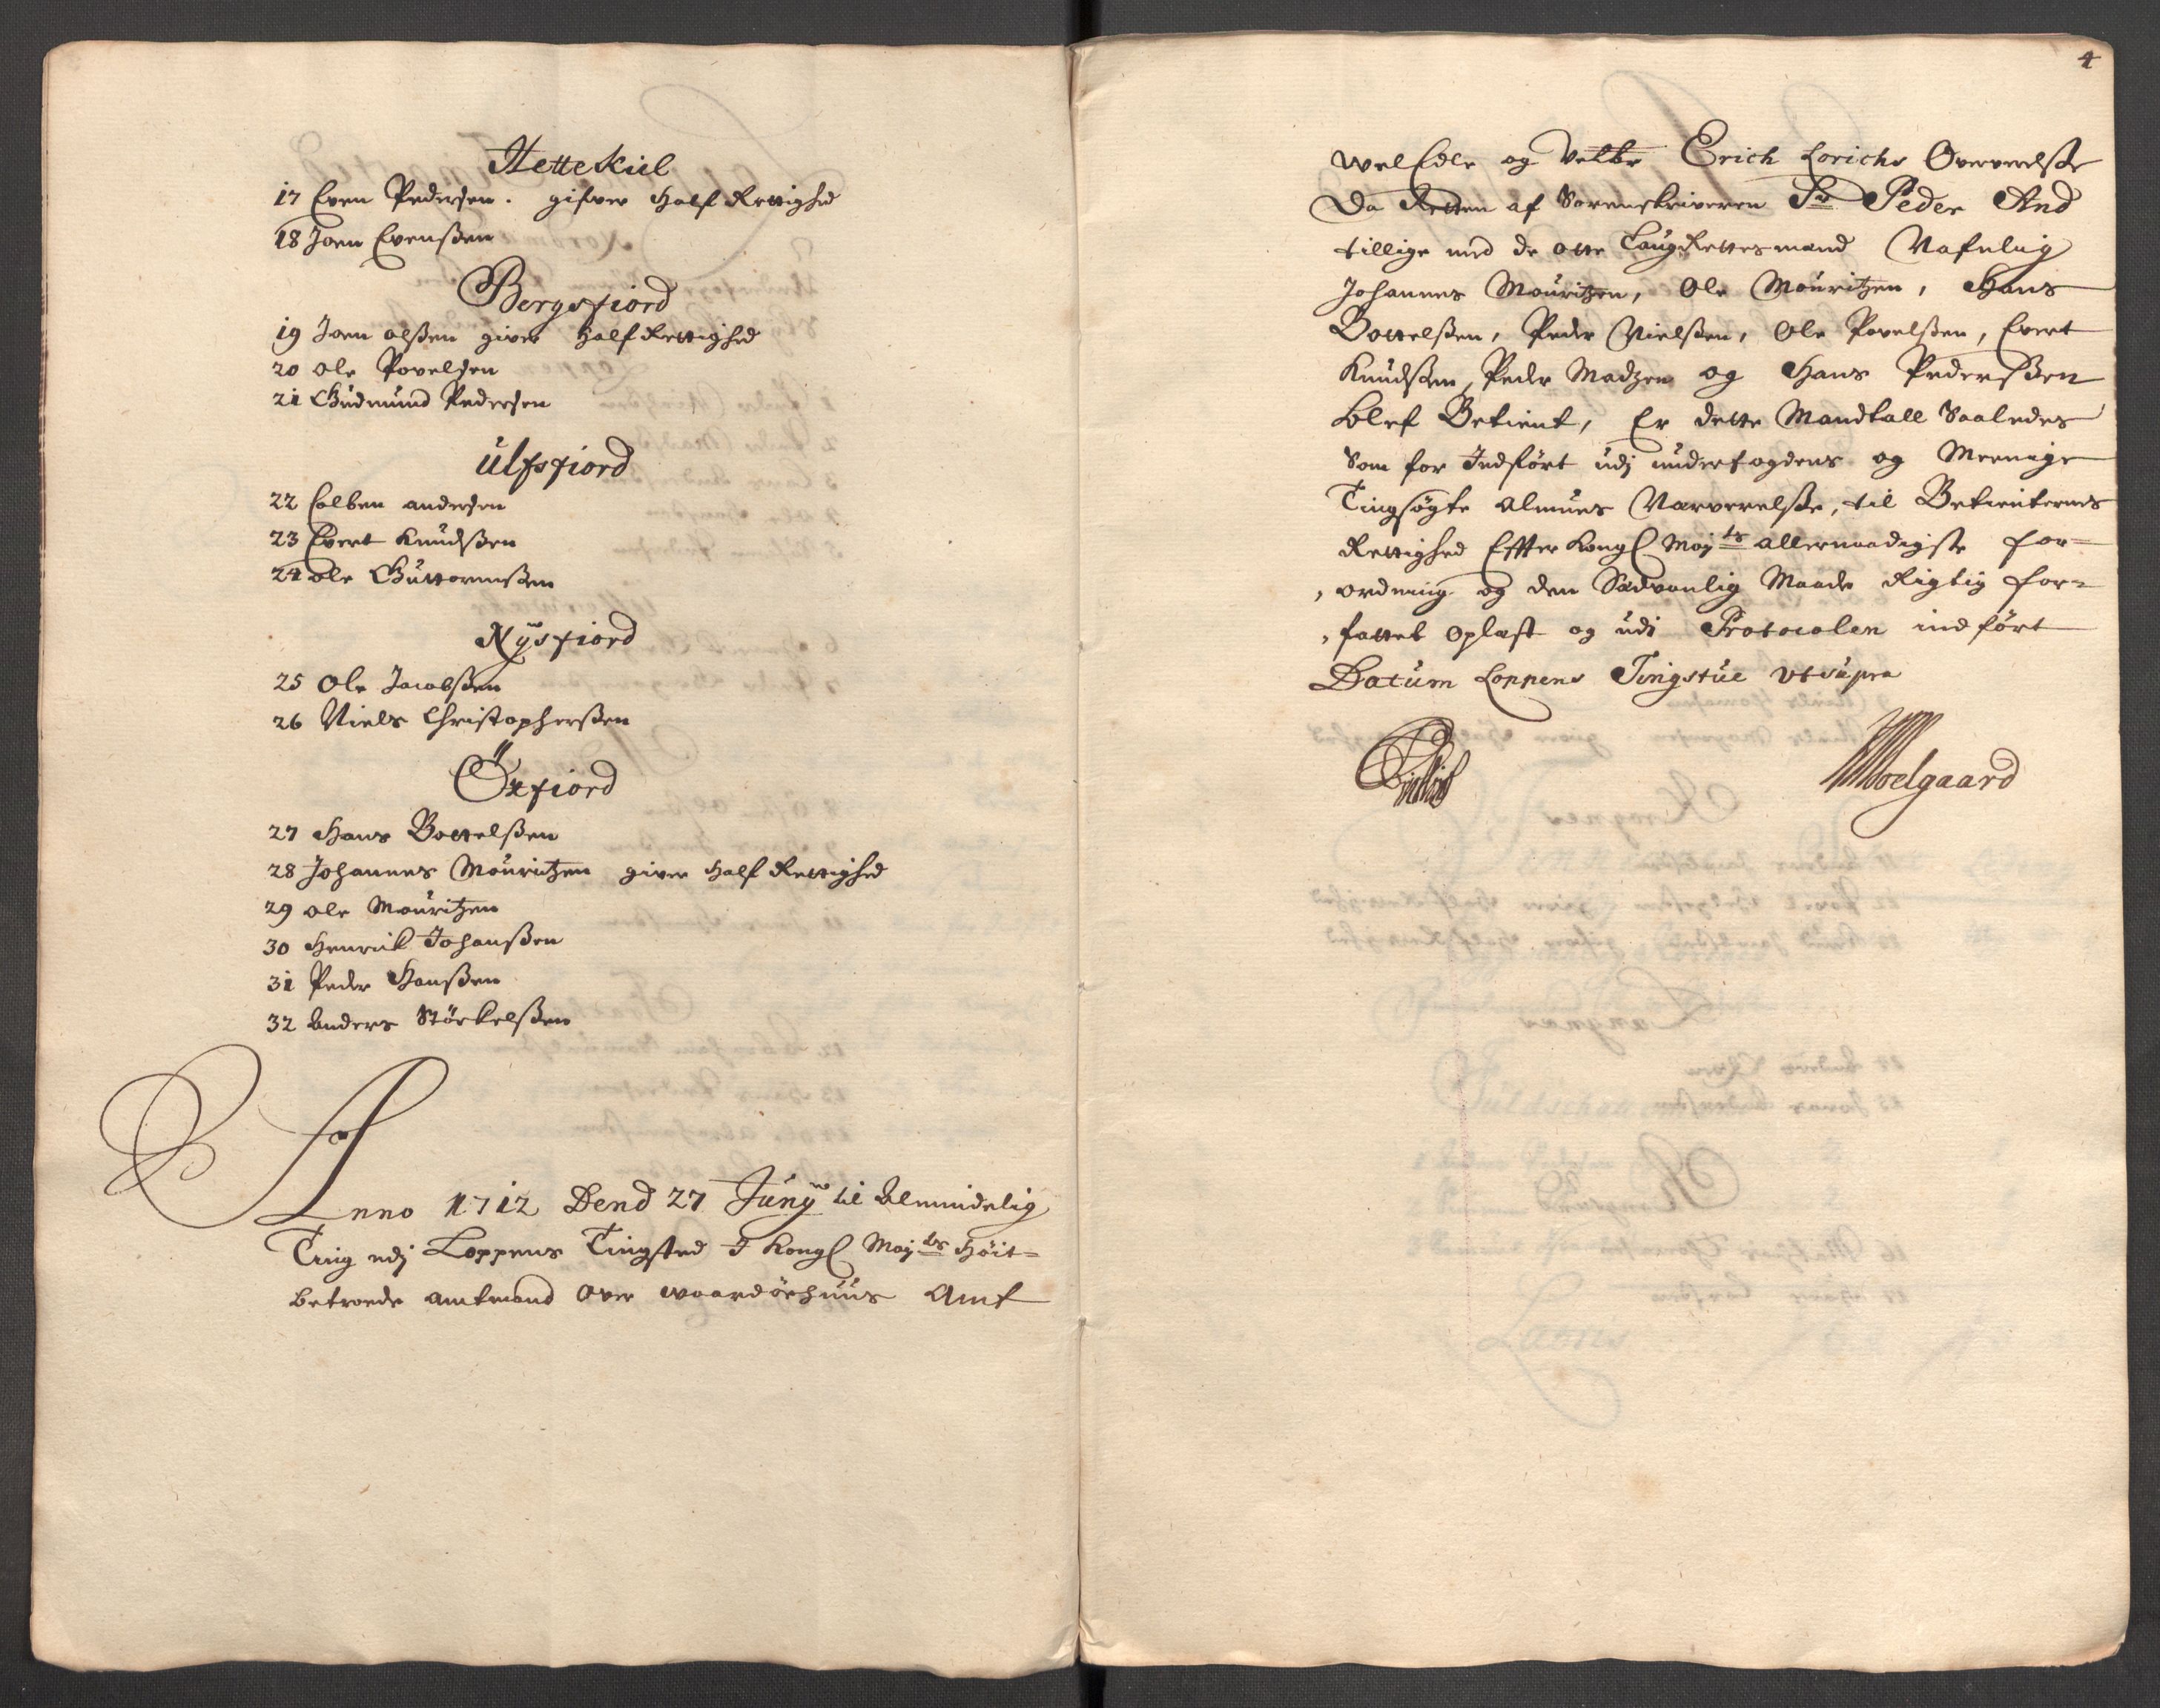 Hettekiel
17 Even Pedersen. gifver Half Rettighed
18 Joen Evensßen
Bergsfiord
19 Joen olsßen giver Half Rettighed
20 ole Povelsen
21 Gudmund Pedersen
ülfsfiord
22 Colben andersen
23 Evert Knudsßen
24 ole Guttormsßen
Nÿsfiord
25 Ole Jacobsßen
26 Niels Christophersßen
Öxfiord
27 Hans Bottelsßen
28 Johannes Mouritzen giver Half Rettighed
29 ole Mouritzen
30 Henrick Johansßen
31 Peder Hansßen
32 Anders Störkelsßen
Anno 1712 Dend 27 Junÿ til Almindelig
Ting udj Loppens Tingsted I Kongl Mayts Höit=
betroede amtmand Over waardöehuus Amt
4
wel Edle og Velbr Erich Lorichs Oververelsße
Da Retten af Sorenskriveren Sr Peder And
tillige med de otte LaugRettesmænd Nafnlig
Johannes Mouritzen, Ole Mouritzen, Hans
Bottelsßen, Peder Nielsßen, Ole Povelsßen, Evert
Knudsßen, Peder Madzen og Hans Pedersßen
blef Betient, Er dette Mandtall Saaledes
Som for Indfört udj underfogdens og Meenige
Tingsögte Almues Nærverelsße, til Betienternes
Rettighed Effter Kongl Mayts allernaadigste for=
ordning og den Sædvanlig Maade Rigtig for=
fattet oplæst og udi Protocolen indfört
Datum Loppens Tingstue Ut supra